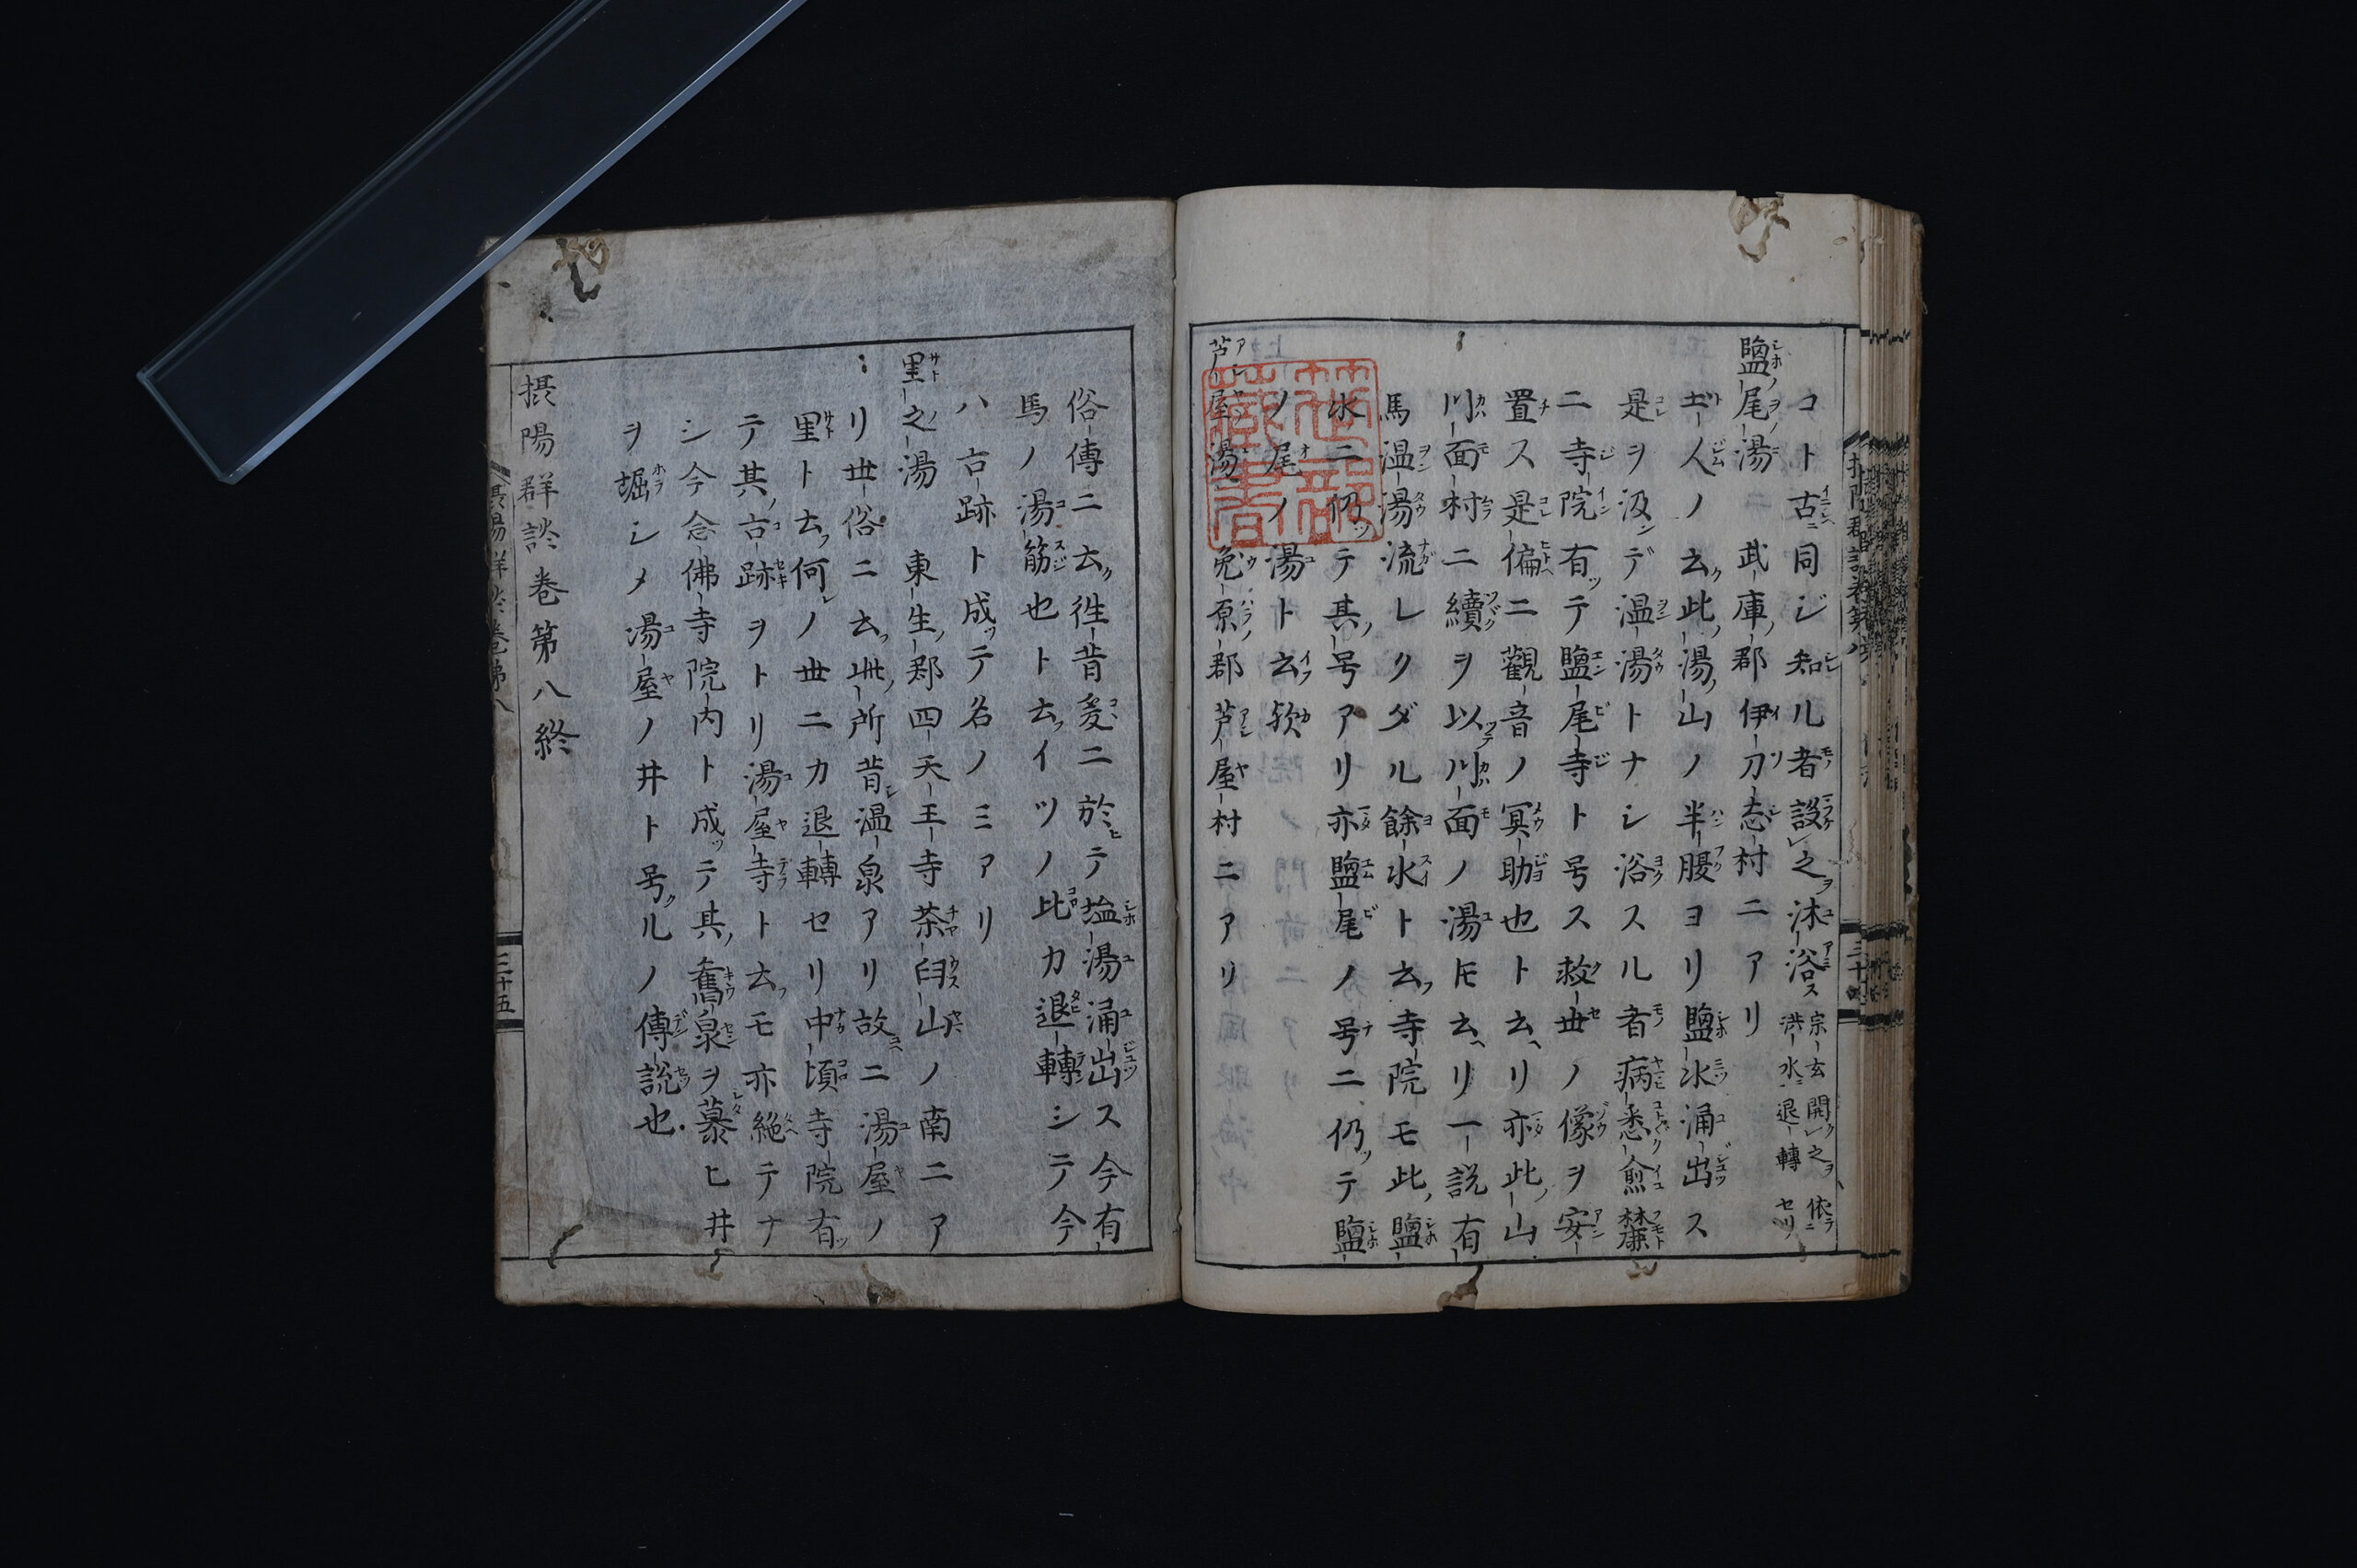 コト古同ジ知ル者設之沐浴ス宗玄開之依洪水退轉セリ
鹽尾湯 武庫郡伊刀志村ニアリ
土人ノ云此湯山ノ半腹ヨリ鹽水涌出ス
是ヲ汲デ温湯トナシ浴スル者病悉愈麓
ニ寺院有テ鹽尾寺ト号ス救世ノ像ヲ安
置ス是偏ニ觀音ノ冥助也ト云リ亦此山
川面村ニ續ヲ以川面ノ湯トモ云リ一説有
馬温湯流レクダル餘水ト云寺院モ此鹽
水ニ仍テ其号アリ亦鹽尾ノ号ニ仍テ鹽
ノ尾ノ湯ト云歟
芦屋湯 兔原郡芦屋村ニアリ
俗傳ニ云徃昔爰ニ於テ塩湯涌出ス今有
馬ノ湯筋也ト云イツノ比カ退轉シテ今
ハ古跡ト成テ名ノミアリ
里之湯 東生郡四天王寺茶臼山ノ南ニア
リ世俗ニ云此所昔温泉アリ故ニ湯屋ノ
里ト云何ノ世ニカ退轉セリ中頃寺院有
テ其古跡ヲトリ湯屋寺ト云モ亦絶テナ
シ今念佛寺院内ト成テ其舊泉ヲ慕ヒ井
ヲ堀シメ湯屋ノ井ト号ルノ傳説也
摂陽群談卷第八終
摂陽群談卷第八
三十五